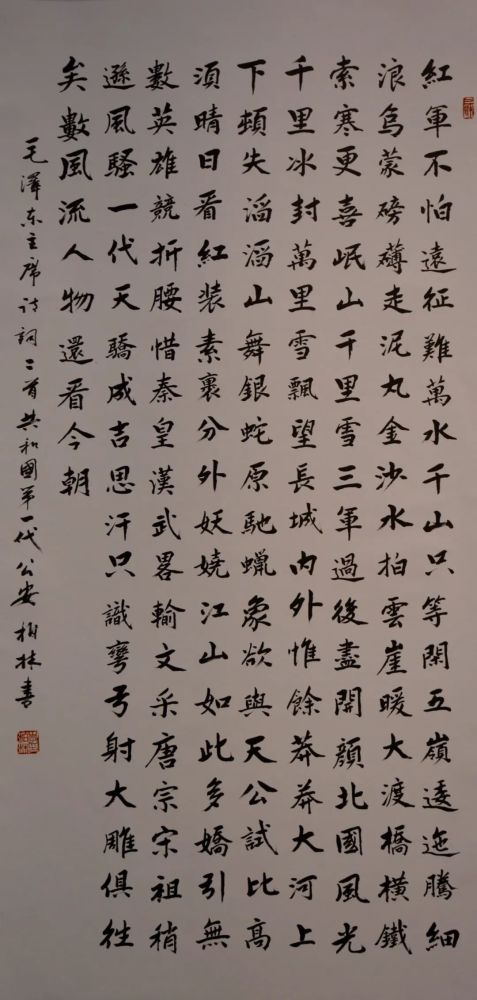 紅軍不怕遠征難萬水千山只等閑五嶺逶迤騰細
浪烏蒙磅礴走泥丸金沙水拍雲崖暖大渡橋橫鐵
索寒更喜岷山千里雪三軍過後盡開顏北國風光
千里冰封萬里雪飄望長城內外惟餘莽莽大河上
下頓失滔滔山舞銀蛇原馳蠟象欲與天公試比高
須晴日看紅装素裹分外妖嬈江山如此多嬌引無
數英雄競折腰惜秦皇漢武畧輸文采唐宗宋祖稍
遜風騷一代天驕成吉思汗只識彎弓射大雕俱往
矣數風流人物還看今朝
毛澤东主席诗詞二首共和國第一代公安柏林書